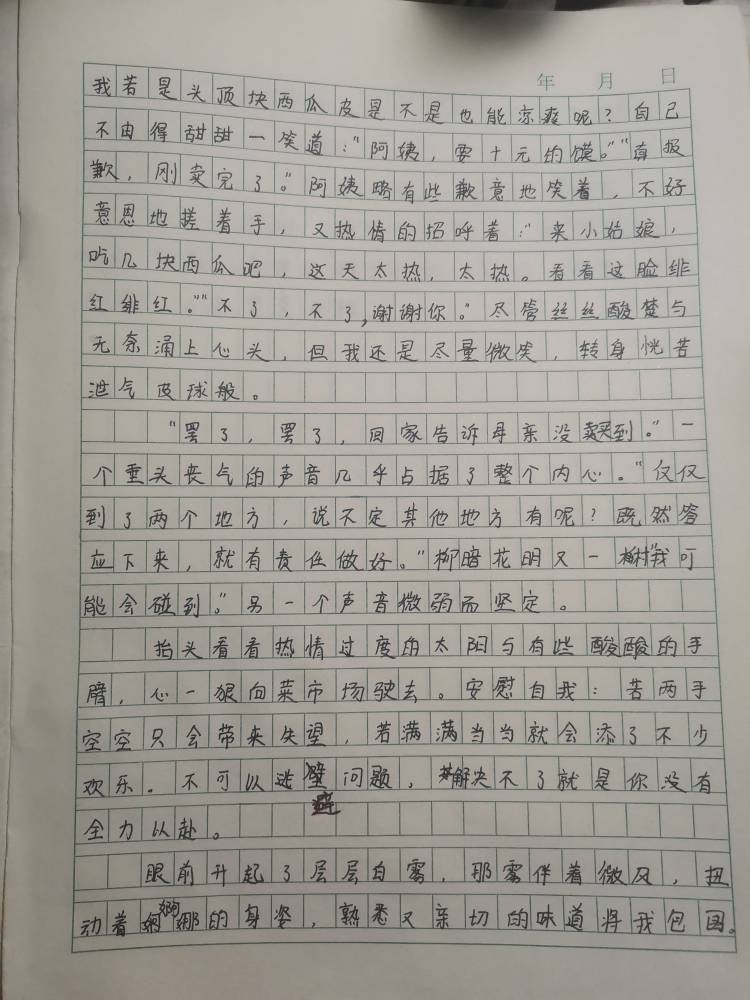 年 月 日
我若是头顶块西瓜皮是不是也能凉爽呢？自己
不由得甜甜一笑道：“阿姨，要十元的馍。”“真报
歉，刚卖完了。”阿姨略有些歉意地笑着，不好
意思地搓着手，又热情的招呼着：“来小姑娘，
吃几块西瓜吧，这天太热，太热。看看这脸绯
红绯红。”“不了，不了，谢谢你。”尽管丝丝酸楚与
无奈涌上心头，但我还是尽量微笑，转身恍若
泄气皮球般。
“罢了，罢了，回家告诉母亲没买到。”一
个垂头丧气的声音几乎占据了整个内心。“仅仅
到了两个地方，说不定其他地方有呢？既然答
应下来，就有责任做好。“柳暗花明又一村”我可
能会碰到。”另一个声音微弱而坚定。
抬头看看热情过度的太阳与有些酸酸的手
臂，心一狠向菜市场驶去。安慰自我：若两手
空空只会带来失望，若满满当当就会添了不少
欢乐。不可以逃避问题，解决不了就是你没有
全力以赴。
眼前升起了层层白雾，那雾伴着微风，扭
动着婀娜的身姿，熟悉又亲切的味道将我包围。